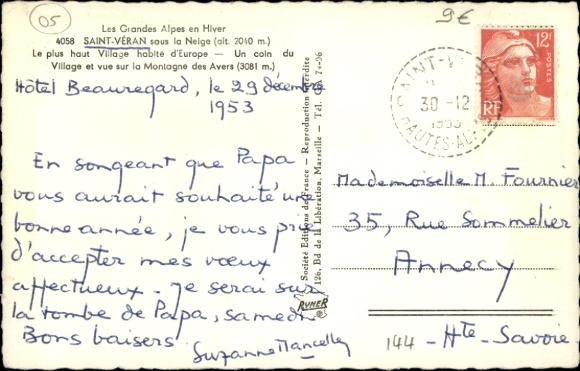 05
9€
Les Grandes Alpes en Hiver
4058 SAINT-VÉRAN sous la Neige (alt. 2040 m.)
Le plus haut Village habité d'Europe — Un coin du
Village et vue sur la Montagne des Avers (3081 m.)
Hôtel Beauregard, le 29 décembre
1953
En songeant que Papa
vous aurait souhaité une
bonne année, je vous prie
d'accepter mes vœux
affectueux. Je serai sur
la tombe de Papa, samedi.
Bons baisers
Suzanne
Société Editions de France - Reproduction interdite
126, Bd de la Libération, Marseille - Tél. GA 74-96
RYNER
12F
POSTES
RF
SAINT-V
30-12
1953
HAUTES-AL
Mademoiselle M. Fournier
35, Rue Sommelier
Annecy
144 - Hte-Savoie